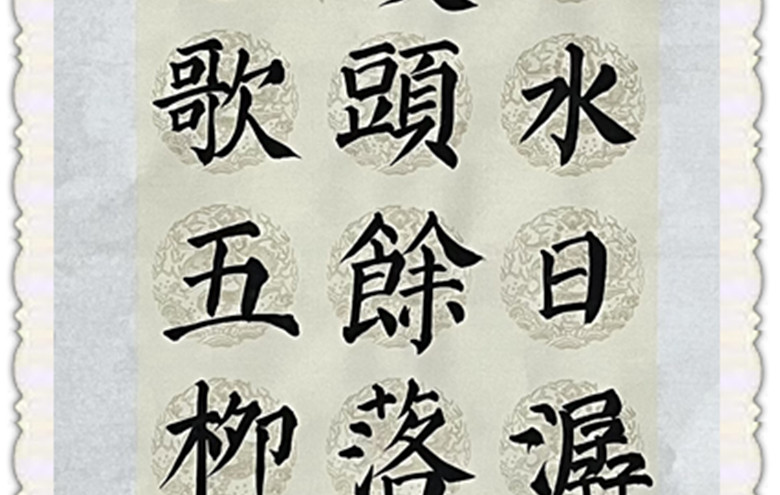 水日潺
頭餘落
歌五柳